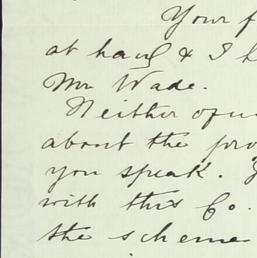 Your f
at hand & I h
Mr Wade.
Neither of us
about the pro
you speak.
with this Co.
the scheme